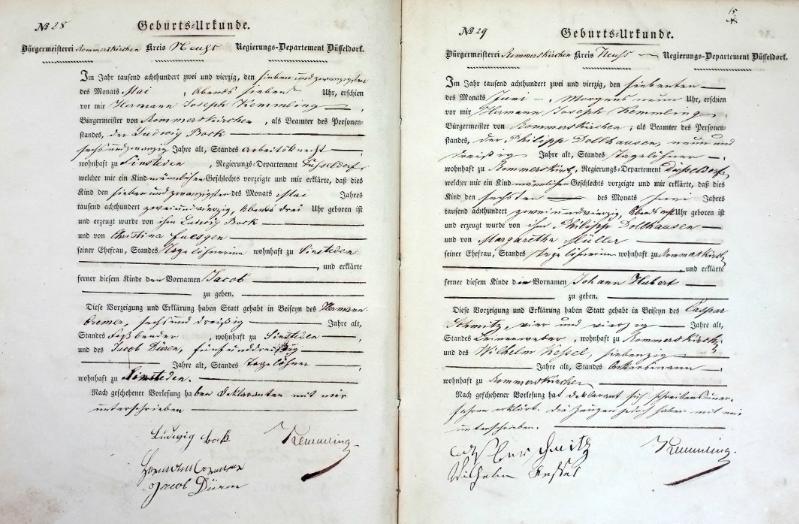 No 28
Geburts-Urkunde.
Bürgermeisterei Rommerskirchen Kreis Neuß Regierungs-Departement Düsseldorf.
Im Jahr tausend achthundert zwei und vierzig, den sieben und zwanzigsten
des Monats Mai, Abends sieben Uhr, erschien
vor mir Hermann Joseph Kemmling,
Bürgermeister von Rommerskirchen, als Beamter des Personen-
standes, der Ludwig Bock
sechsundzwanzig Jahre alt, Standes Arbeitsknecht,
wohnhaft zu Sinsteden, Regierungs-Departement Düsseldorf,
welcher mir ein Kind männlichen Geschlechts vorzeigte und mir erklärte, daß dies
Kind den sieben und zwanzigsten des Monats Mai Jahres
tausend achthundert zwei und vierzig, Abends drei Uhr geboren ist
und erzeugt wurde von ihm Ludwig Bock
und von Christina
seiner Ehefrau, Standes Tagelöhnerin wohnhaft zu Sinsteden
, und erklärte
ferner diesem Kinde den Vornamen Jacob
zu geben.
Diese Vorzeigung und Erklärung haben Statt gehabt in Beiseyn des Hermann
Cremer, sechs und dreißig Jahre alt,
Standes Faßbender, wohnhaft zu Sinsteden
und des Jacob Düren, fünf und dreißig
Jahre alt, Standes Tagelöhner
wohnhaft zu Sinsteden.
Nach geschehener Vorlesung haben Deklaranten mit mir
unterschrieben
Ludwig Bock Kemmling.
Hermann Cremer
Jacob Düren
No 29
Geburts-Urkunde.
Bürgermeisterei Rommerskirchen Kreis Neuß Regierungs-Departement Düsseldorf.
Im Jahr tausend achthundert zwei und vierzig, den siebenten
des Monats Juni, Morgens neun Uhr, erschien
vor mir Hermann Joseph Kemmling,
Bürgermeister von Rommerskirchen, als Beamter des Personen-
standes, der Philipp Dollhausen, neun und
dreißig Jahre alt, Standes Tagelöhner,
wohnhaft zu Rommerskirchen, Regierungs-Departement Düsseldorf,
welcher mir ein Kind männlichen Geschlechts vorzeigte und mir erklärte, daß dies
Kind den sechsten des Monats Juni Jahres
tausend achthundert zwei und vierzig, Abends acht Uhr geboren ist
und erzeugt wurde von ihm Philipp Dollhausen
und von Margaretha Müller
seiner Ehefrau, Standes Tagelöhnerin wohnhaft zu Rommerskirchen
, und erklärte
ferner diesem Kinde den Vornamen Johann Hubert
zu geben.
Diese Vorzeigung und Erklärung haben Statt gehabt in Beiseyn des Caspar
Schmitz, vier und vierzig Jahre alt,
Standes wohnhaft zu Rommerskirchen
und des Wilhelm Hessel, siebenzig
Jahre alt, Standes Ackersmann
wohnhaft zu Rommerskirchen
Nach geschehener Vorlesung hat Deklarant sich schreibensuner-
fahren erklärt. die Zeugen haben mit mir
unterschrieben.
Caspar Schmitz Kemmling.
Wilhelm Hessel